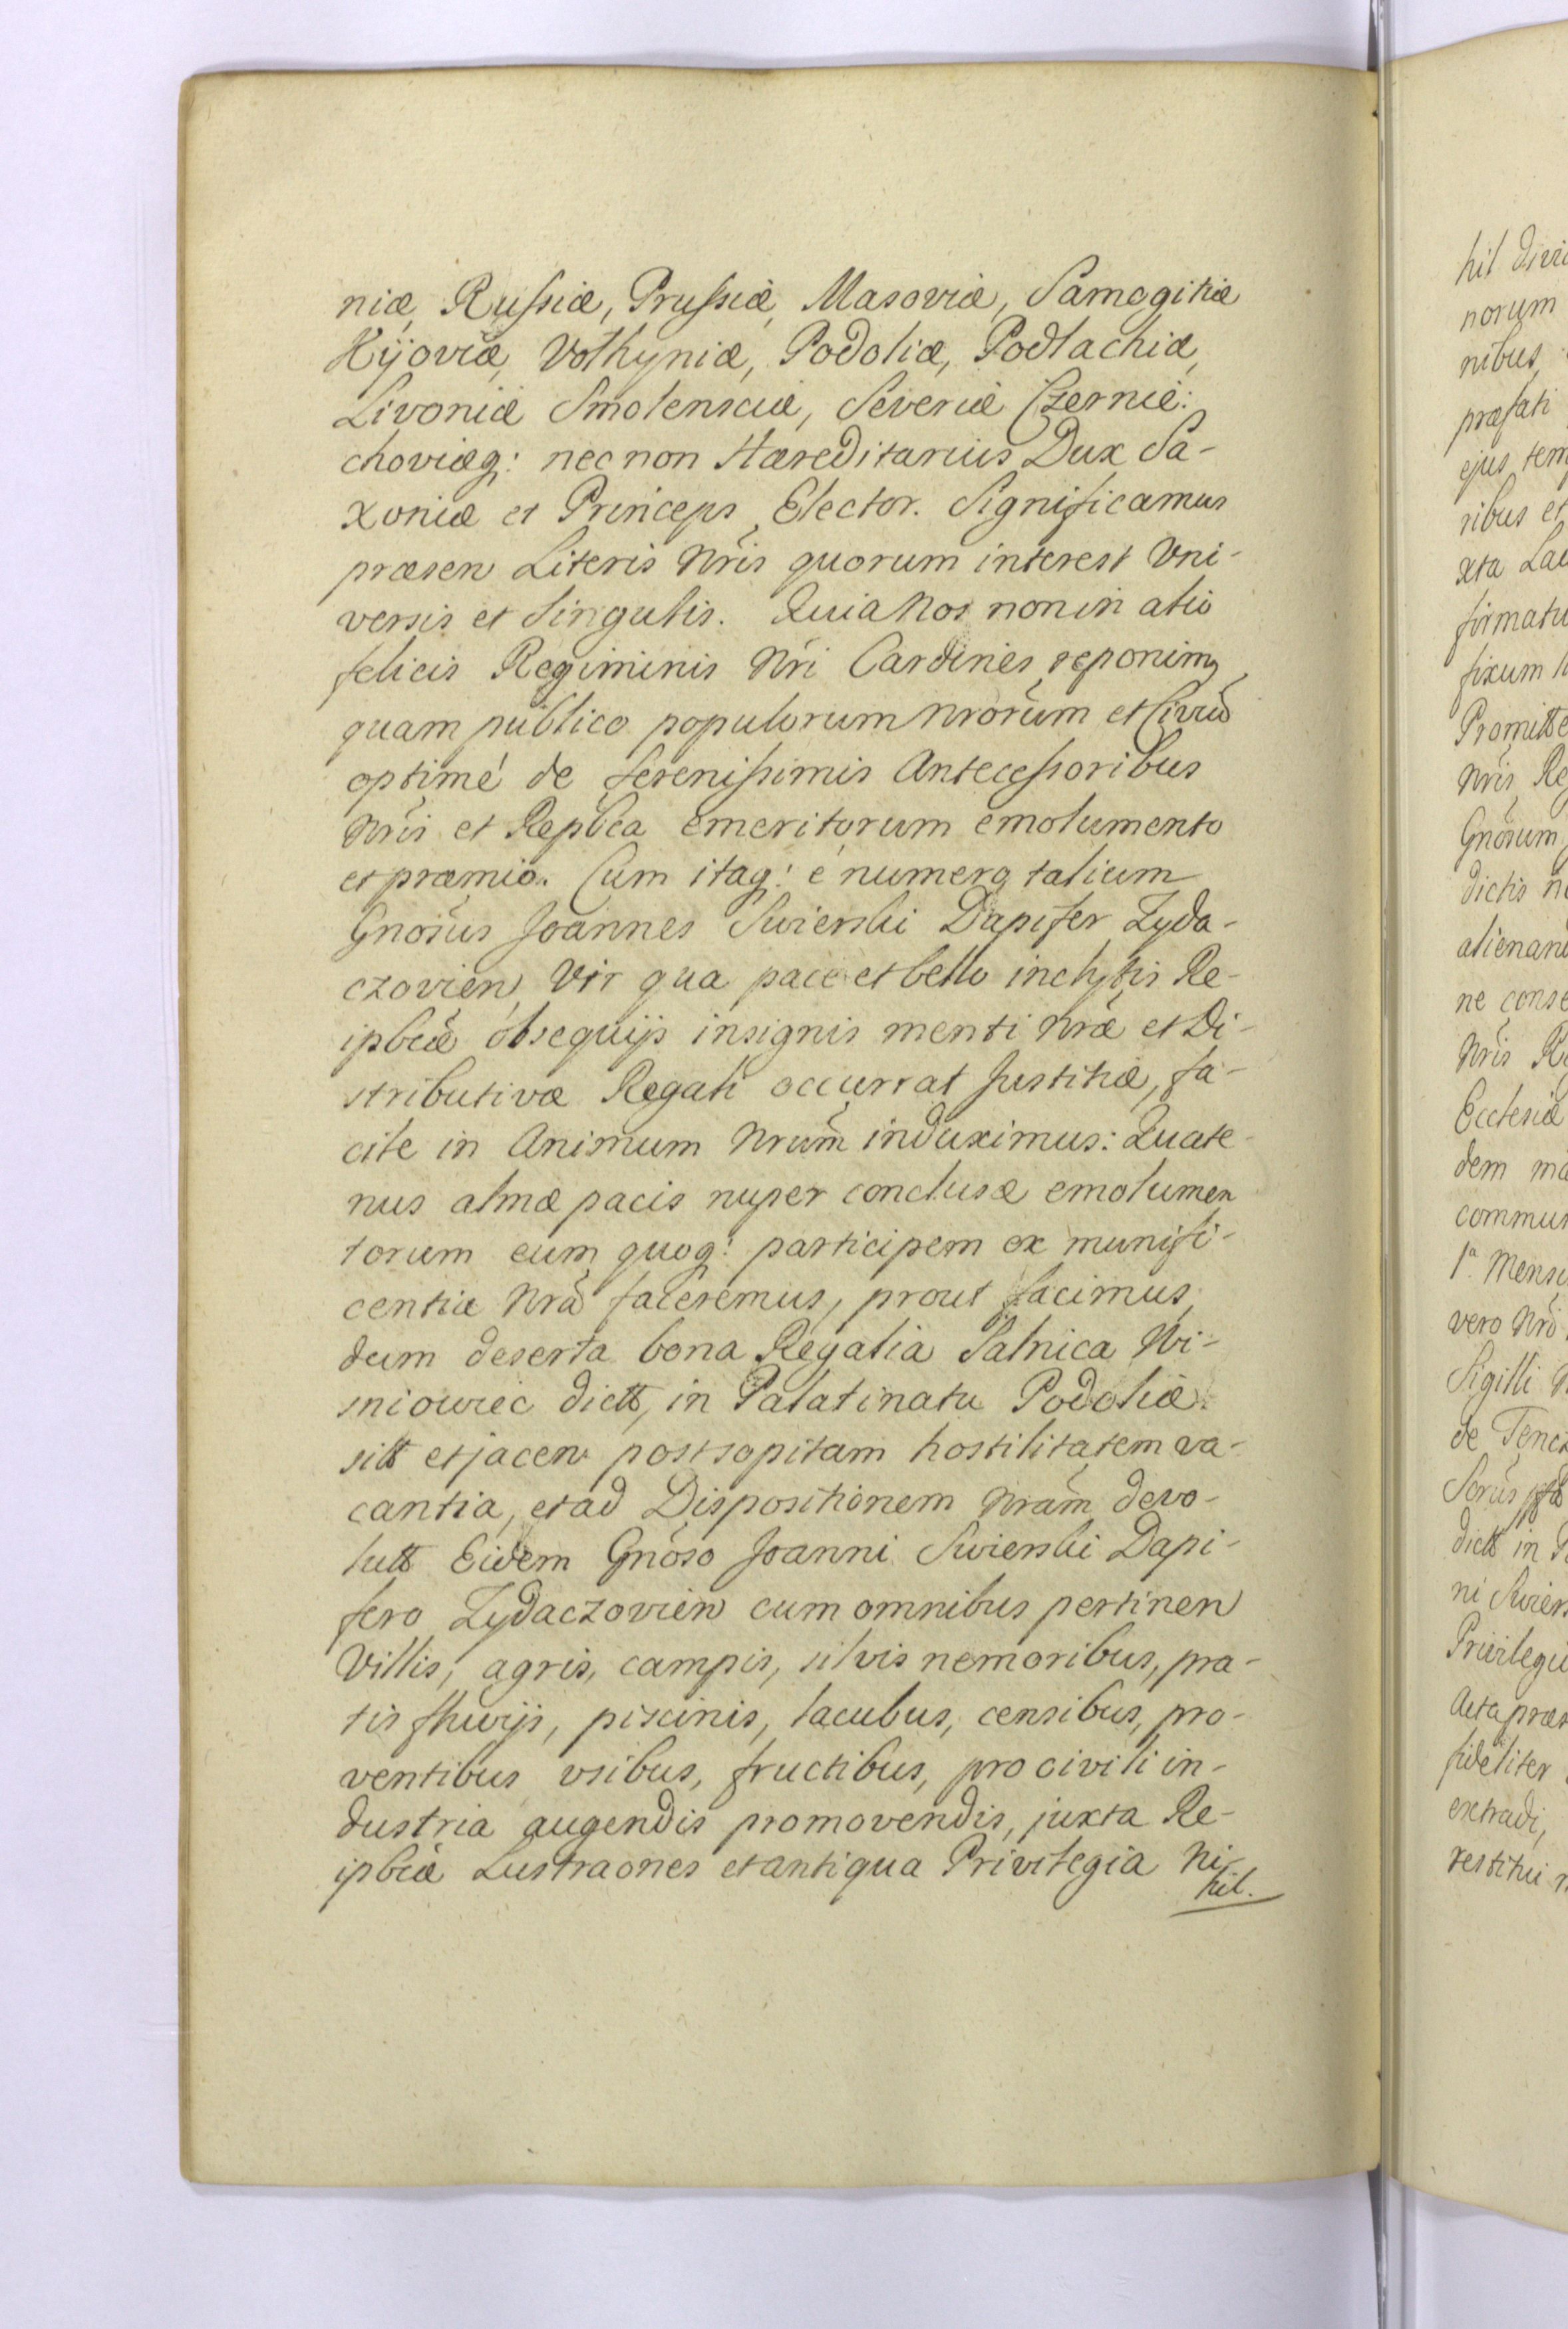 niæ, Russiæ, Prussiæ, Masoviæ, Samogitiæ
Kijoviæ, Volhyniæ, Podoliæ, Podlachiæ,
Livoniæ Smolensciæ, Severiæ Czernie:
choviæq: nec non Hæreditarius Dux Sa-
xoniæ et Princeps Elector. Significamus
præsen Literis Nris quorum interest Uni-
versis et Singulis. Quia Nos non in alio
felicis Regiminis Nri Cardines reponimq
quam publico populorum Nrorum et Civiu
optimé de Serenissimis Antecessoribus
Nris et Repblca emeritorum emolumento
et præmio. Cum itaq: é numero talium
Gnosus Joannes Swierski Dapifer Zyda-
czovien Vir qua pace et bello inclytis Re-
ipbcæ obsequijs insignis menti Nræ et Di-
stributivæ Regali occurrat Justitiæ, fa-
cile in Animum Nrum induximus: Quate-
nus almæ pacis nuper conclusæ emolumen
torum eum quoq: participem ex munifi-
centia Nra faceremus, prout facimus,
dum deserta bona Regalia Salnica Wi-
sniowiec dictt, in Palatinatu Podoliæ
sitt et jacen post sopitam hostilitatem va-
cantia, et ad Dispositionem Nram devo-
lutt Eidem Gnoso Joanni Swierski Dapi-
fero Zydaczovien cum omnibus pertinen
Villis, agris, campis, silvis nemoribus, pra-
tis fluvijs, piscinis, lacubus, censibus, pro-
ventibus usibus, fructibus, pro civili in-
dustria augendis promovendis, juxta Re-
ipbcæ Lustraones et antiqua Privilegia Ni-
hil.
hil
norum
nibus,
præfati
ejus
ribus et
xta
firmatu
fixum
Nris
Gnosum
dictis
alienand
ne
Nris
Ecclesiæ
dem
commun
1ª Mens
vero Nro
Sigilli
de Tencz
dictt in
ni Swiers
Privilegi
Acta
fideliter
extradi,
restitui